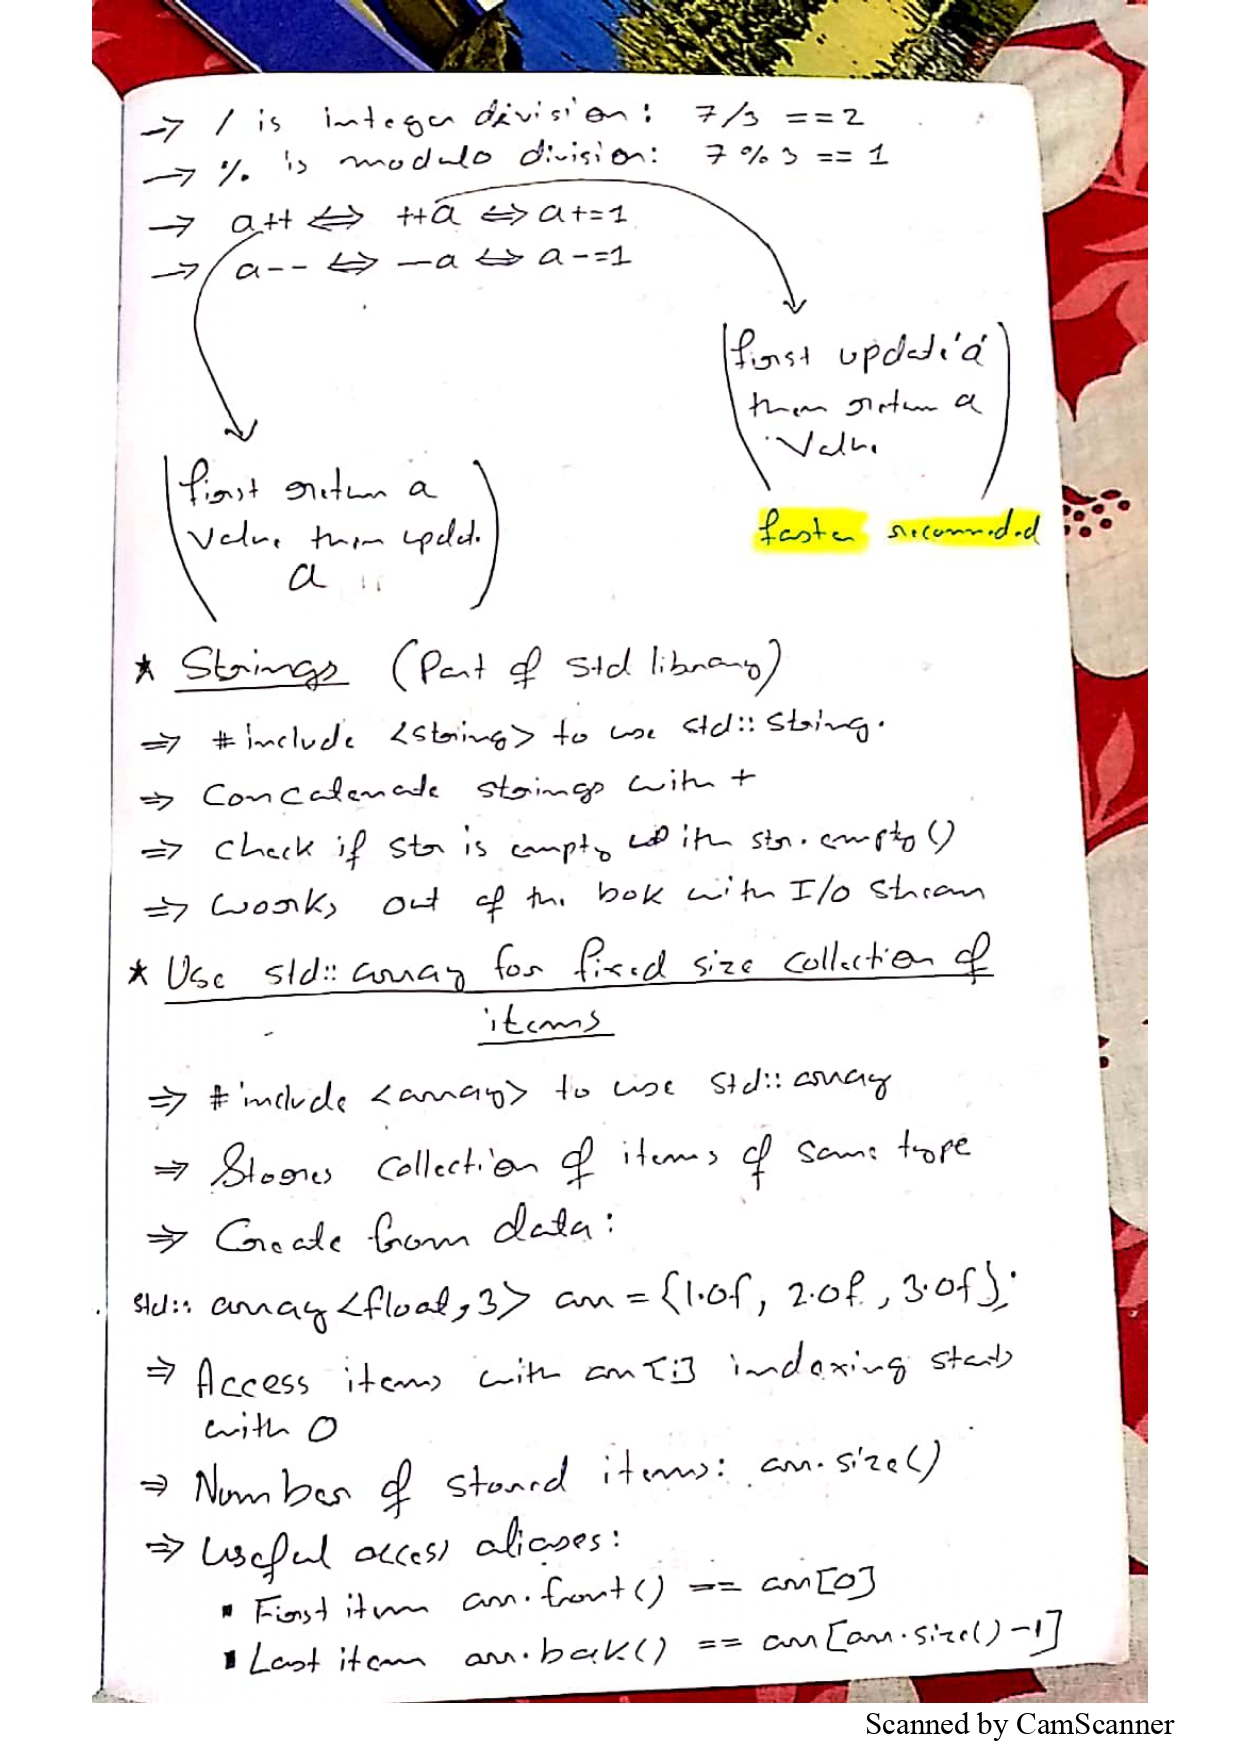 → / is integer division: 7/3 == 2
→ % is modulo division: 7 % 3 == 1
→ a++ ⇔ ++a ⇔ a+=1
→ a-- ⇔ —a ⇔ a-=1
(first update 'a'
then return a
value)
(first return a
value then updat.
a)
faster recommended
* Strings (Part of std library)
⇒ #include <string> to use std::string.
⇒ Concatenate strings with +
⇒ Check if str is empty with str.empty()
⇒ works out of the box with I/O stream
* Use std::array for fixed size collection of
items
⇒ #include <array> to use std::array
⇒ Stores collection of items of same type
⇒ Create from data:
std:: array<float,3> arr = {1.0f, 2.0f, 3.0f};
⇒ Access items with arr[i] indexing starts
with 0
⇒ Number of stored items: arr.size()
⇒ Useful access aliases:
▪ First item arr.front() == arr[0]
▪ Last item arr.back() == arr[arr.size()-1]
Scanned by CamScanner